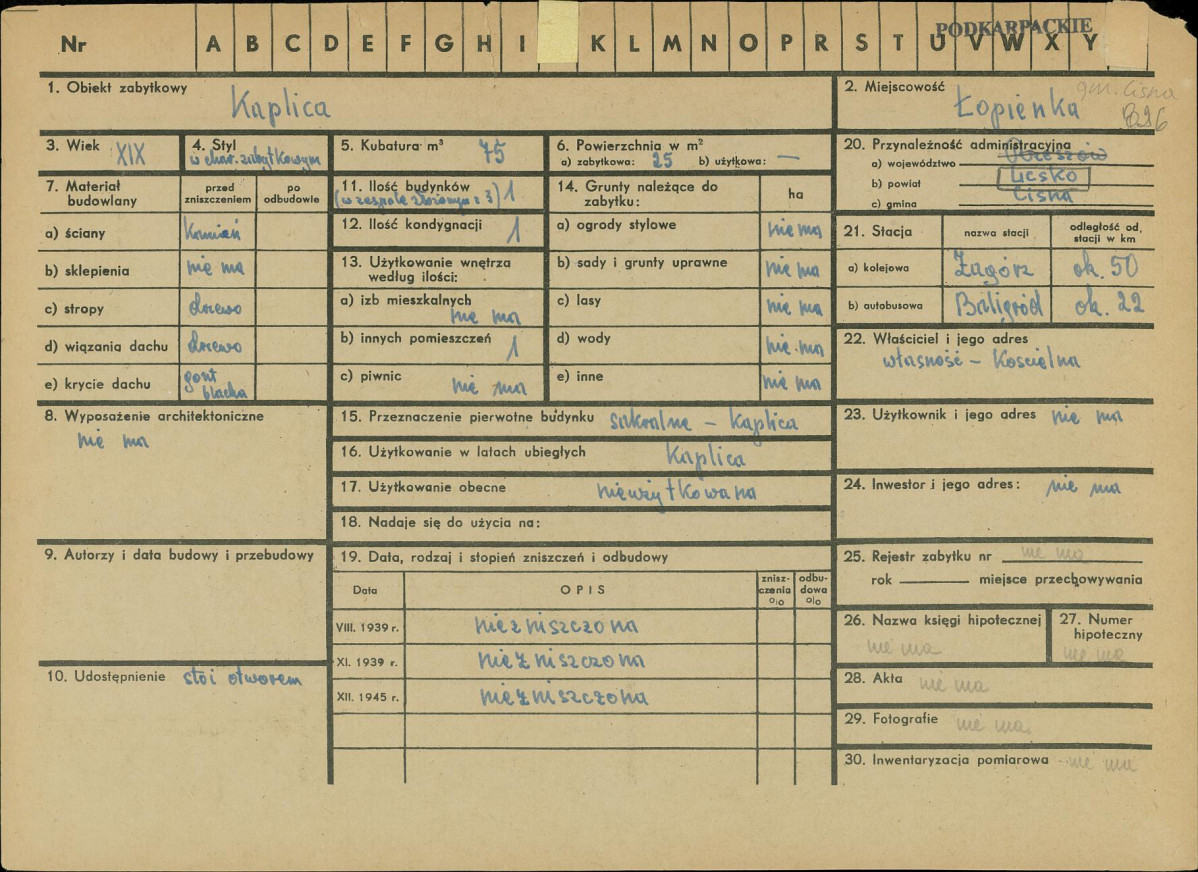 PODKARPACKIE
Nr A B C D E F G H I K L M N O P R S T U V W X Y
1. Obiekt zabytkowy
Kaplica
2. Miejscowość
gm. Cisna
Łopienka
3. Wiek XIX
4. Styl
w char. zabytkowym
5. Kubatura m³ 75
6. Powierzchnia w m²
a) zabytkowa: 25 b) użytkowa: —
20. Przynależność administracyjna
a) województwo Rzeszów
b) powiat Lesko
c) gmina Cisna
7. Materiał budowlany
przed zniszczeniem
po odbudowie
a) ściany kamień
b) sklepienia nie ma
c) stropy drzewo
d) wiązania dachu drzewo
e) krycie dachu gont
blacha
11. Ilość budynków 1
(w zespole złożonym z 3)
12. Ilość kondygnacji 1
13. Użytkowanie wnętrza
według ilości:
a) izb mieszkalnych
nie ma
b) innych pomieszczeń 1
c) piwnic nie ma
14. Grunty należące do
zabytku:
ha
a) ogrody stylowe nie ma
b) sady i grunty uprawne nie ma
c) lasy nie ma
d) wody nie ma
e) inne nie ma
21. Stacja
nazwa stacji
odległość od,
stacji w km
a) kolejowa Zagórz ok. 50
b) autobusowa Baligród ok. 22
22. Właściciel i jego adres
własność – Kościelna
8. Wyposażenie architektoniczne
nie ma
15. Przeznaczenie pierwotne budynku sakralne – Kaplica
16. Użytkowanie w latach ubiegłych Kaplica
17. Użytkowanie obecne nieużytkowana
18. Nadaje się do użycia na:
23. Użytkownik i jego adres nie ma
24. Inwestor i jego adres: nie ma
9. Autorzy i data budowy i przebudowy
19. Data, rodzaj i stopień zniszczeń i odbudowy
Data
OPIS
znisz-
czenia
%
odbu-
dowa
%
VIII. 1939 r. niezniszczona
XI. 1939 r. niezniszczona
XII. 1945 r. niezniszczona
10. Udostępnienie stoi otworem
25. Rejestr zabytku nr nie ma
rok miejsce przechowywania
26. Nazwa księgi hipotecznej
nie ma
27. Numer
hipoteczny
nie ma
28. Akta nie ma
29. Fotografie nie ma
30. Inwentaryzacja pomiarowa nie ma